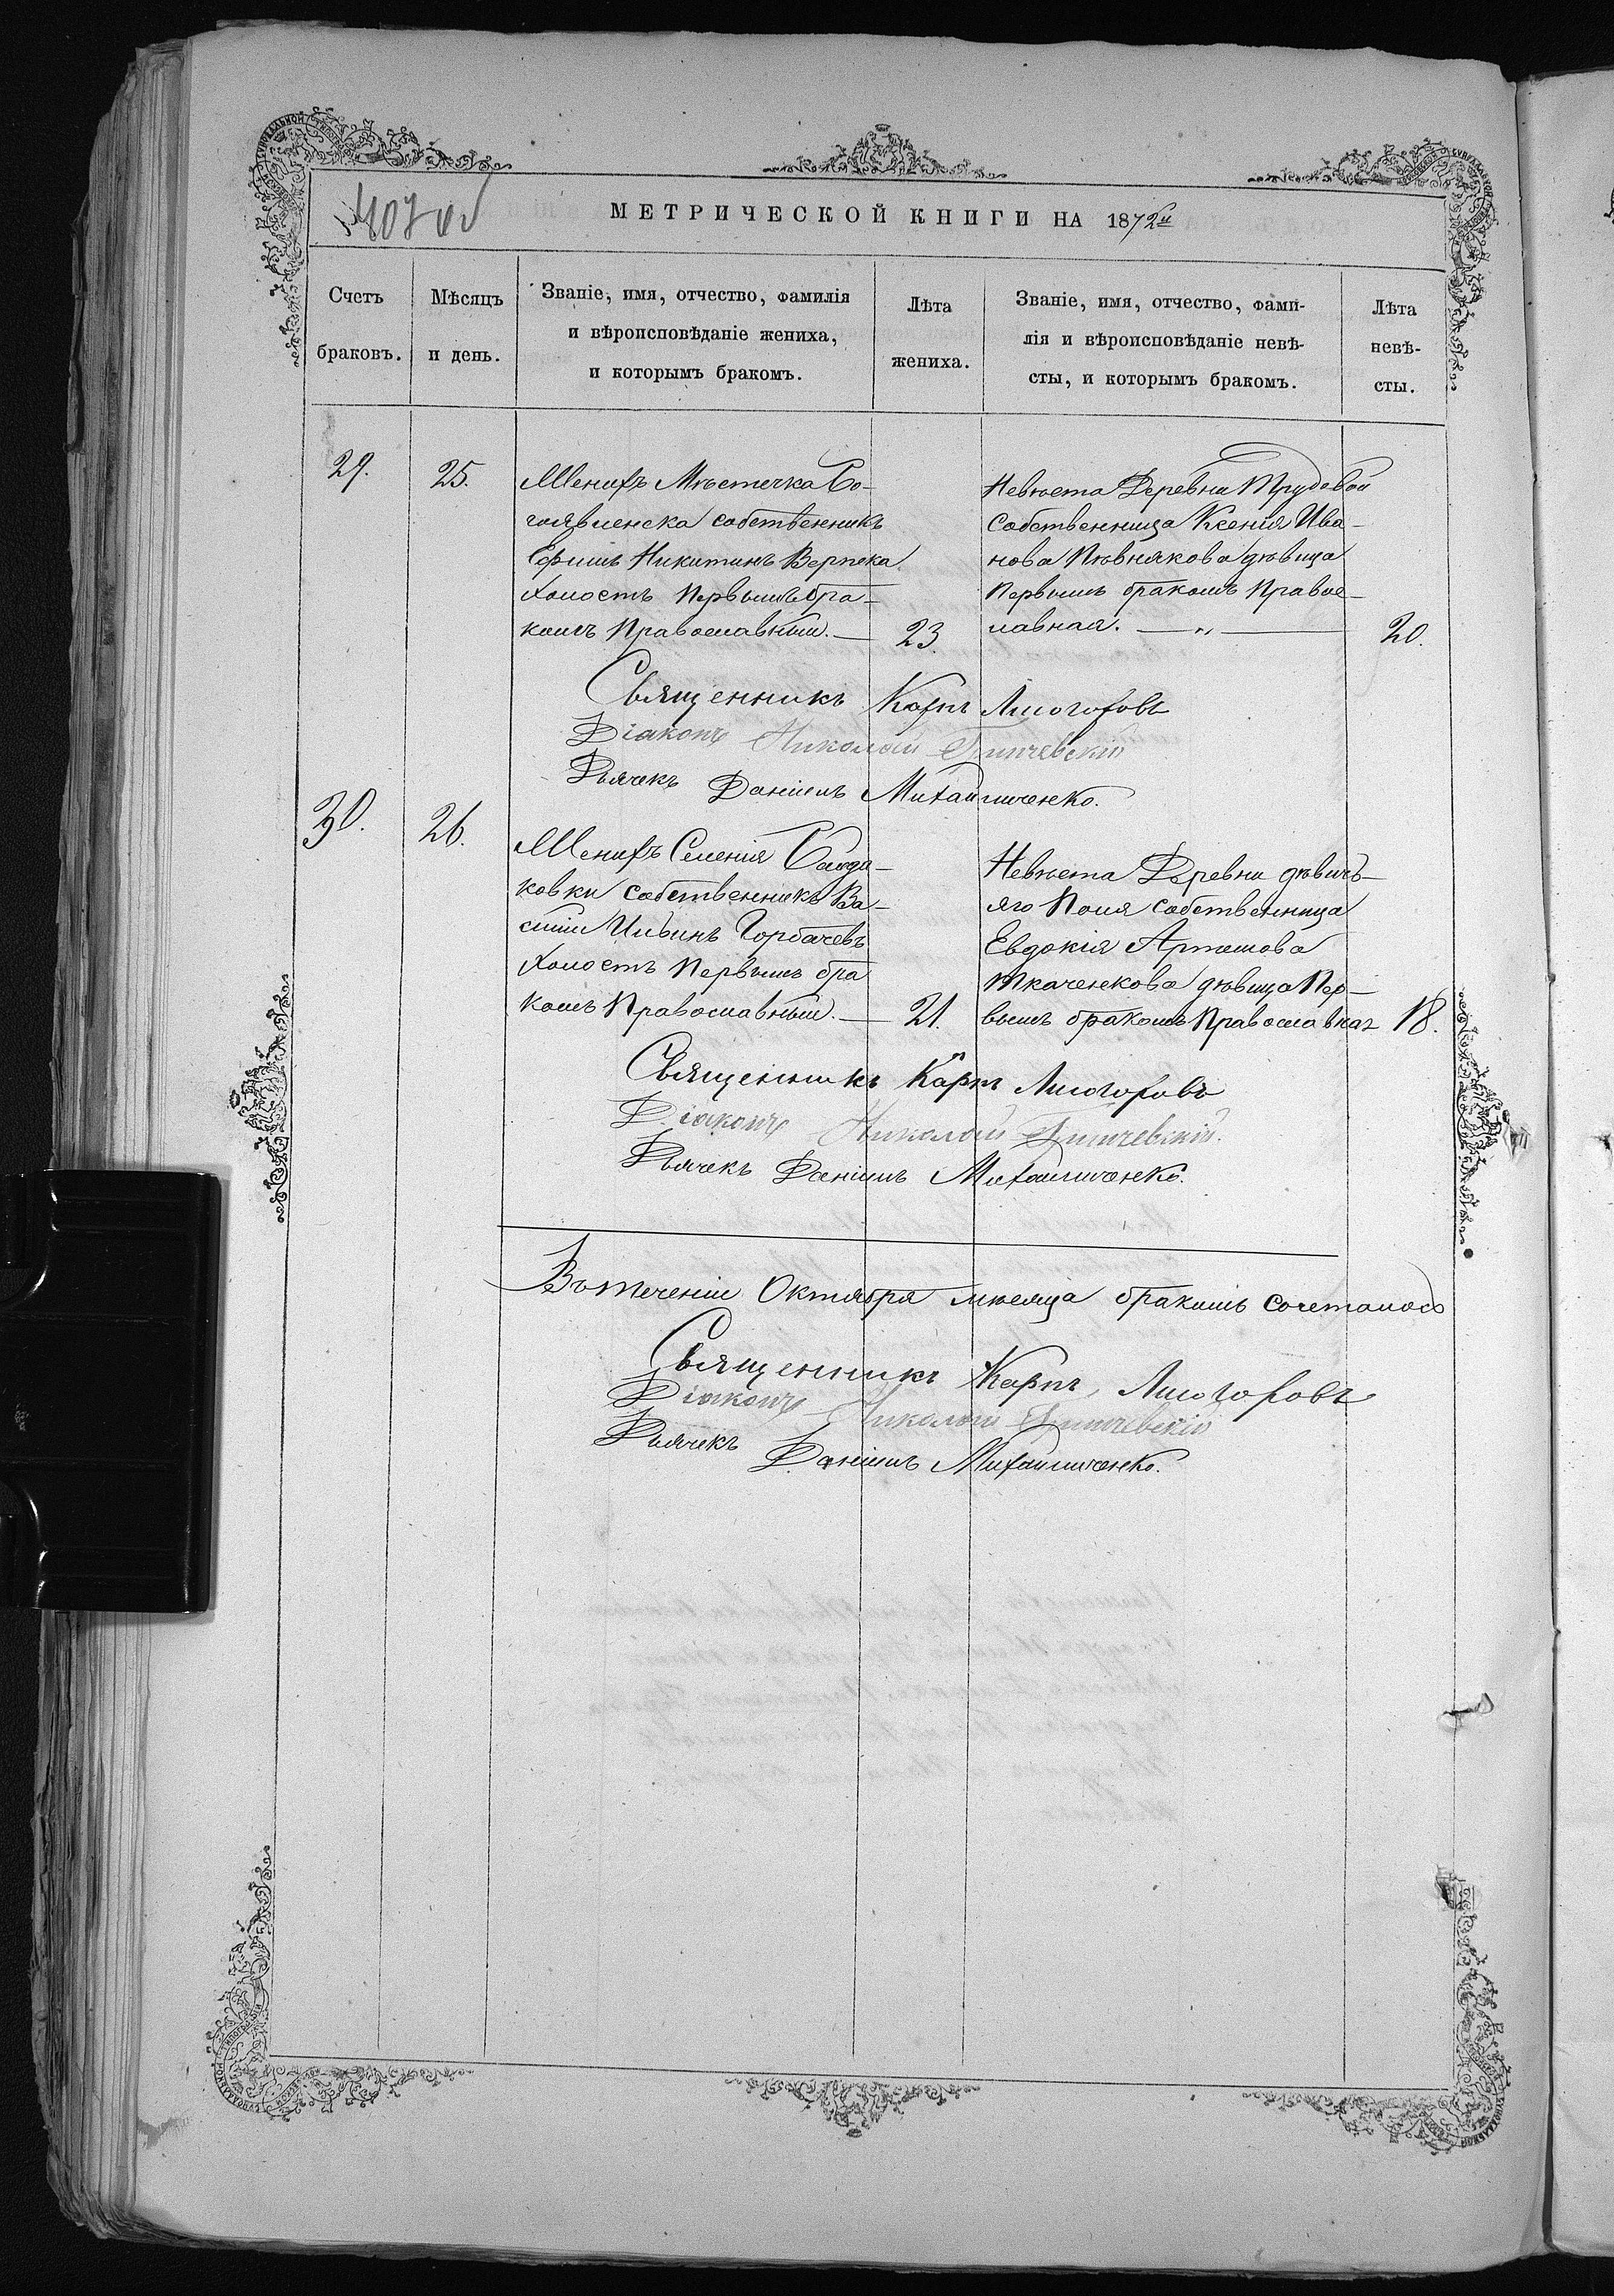 407 об
МЕТРИЧЕСКОЙ КНИГИ НА 1872й
Счетъ
браковъ.
Мѣсяцъ
и день.
Званіе, имя, отчество, фамилія
и вѣроисповѣданіе жениха,
и которымъ бракомъ.
Лѣта
жениха.
Званіе, имя, отчество, фами-
лія и вѣроисповѣданіе невѣ-
сты, и которымъ бракомъ.
Лѣта
невѣ-
сты.
29.
25.
Женихъ Мѣстечка Бо-
гоявленска собственникъ
Ефимъ Никитинъ Верпека
холостъ Первымъ бра-
комъ Православный. —
23.
Невѣста Деревни Трудовой
собственница Ксенія Ива-
нова Пивнякова дѣвица
Первымъ бракомъ Правос-
лавная. — „ —
20.
Священникъ Карпъ Лисогоровъ
Діаконъ Николай
Дьячекъ Даніилъ Михайличенко.
30.
26.
Женихъ Селенія Балда-
ковки собственникъ Ва-
силій Ильинъ Горбачевъ
холостъ Первымъ бра
комъ Православный. —
21.
Невѣста Деревни дѣвичь-
яго Поля собственница
Евдокія Артемова
Ткаченкова дѣвица Пер-
вымъ бракомъ Православная
18.
Священникъ Карпъ Лисогоровъ
Діаконъ Николай
Дьячекъ Даніилъ Михайличенко.
Въ теченіи Октября мѣсяца бракомъ сочеталось
Священникъ Карпъ Лисогоровъ
Діаконъ Николай
Дьячекъ Даніилъ Михайличенко.